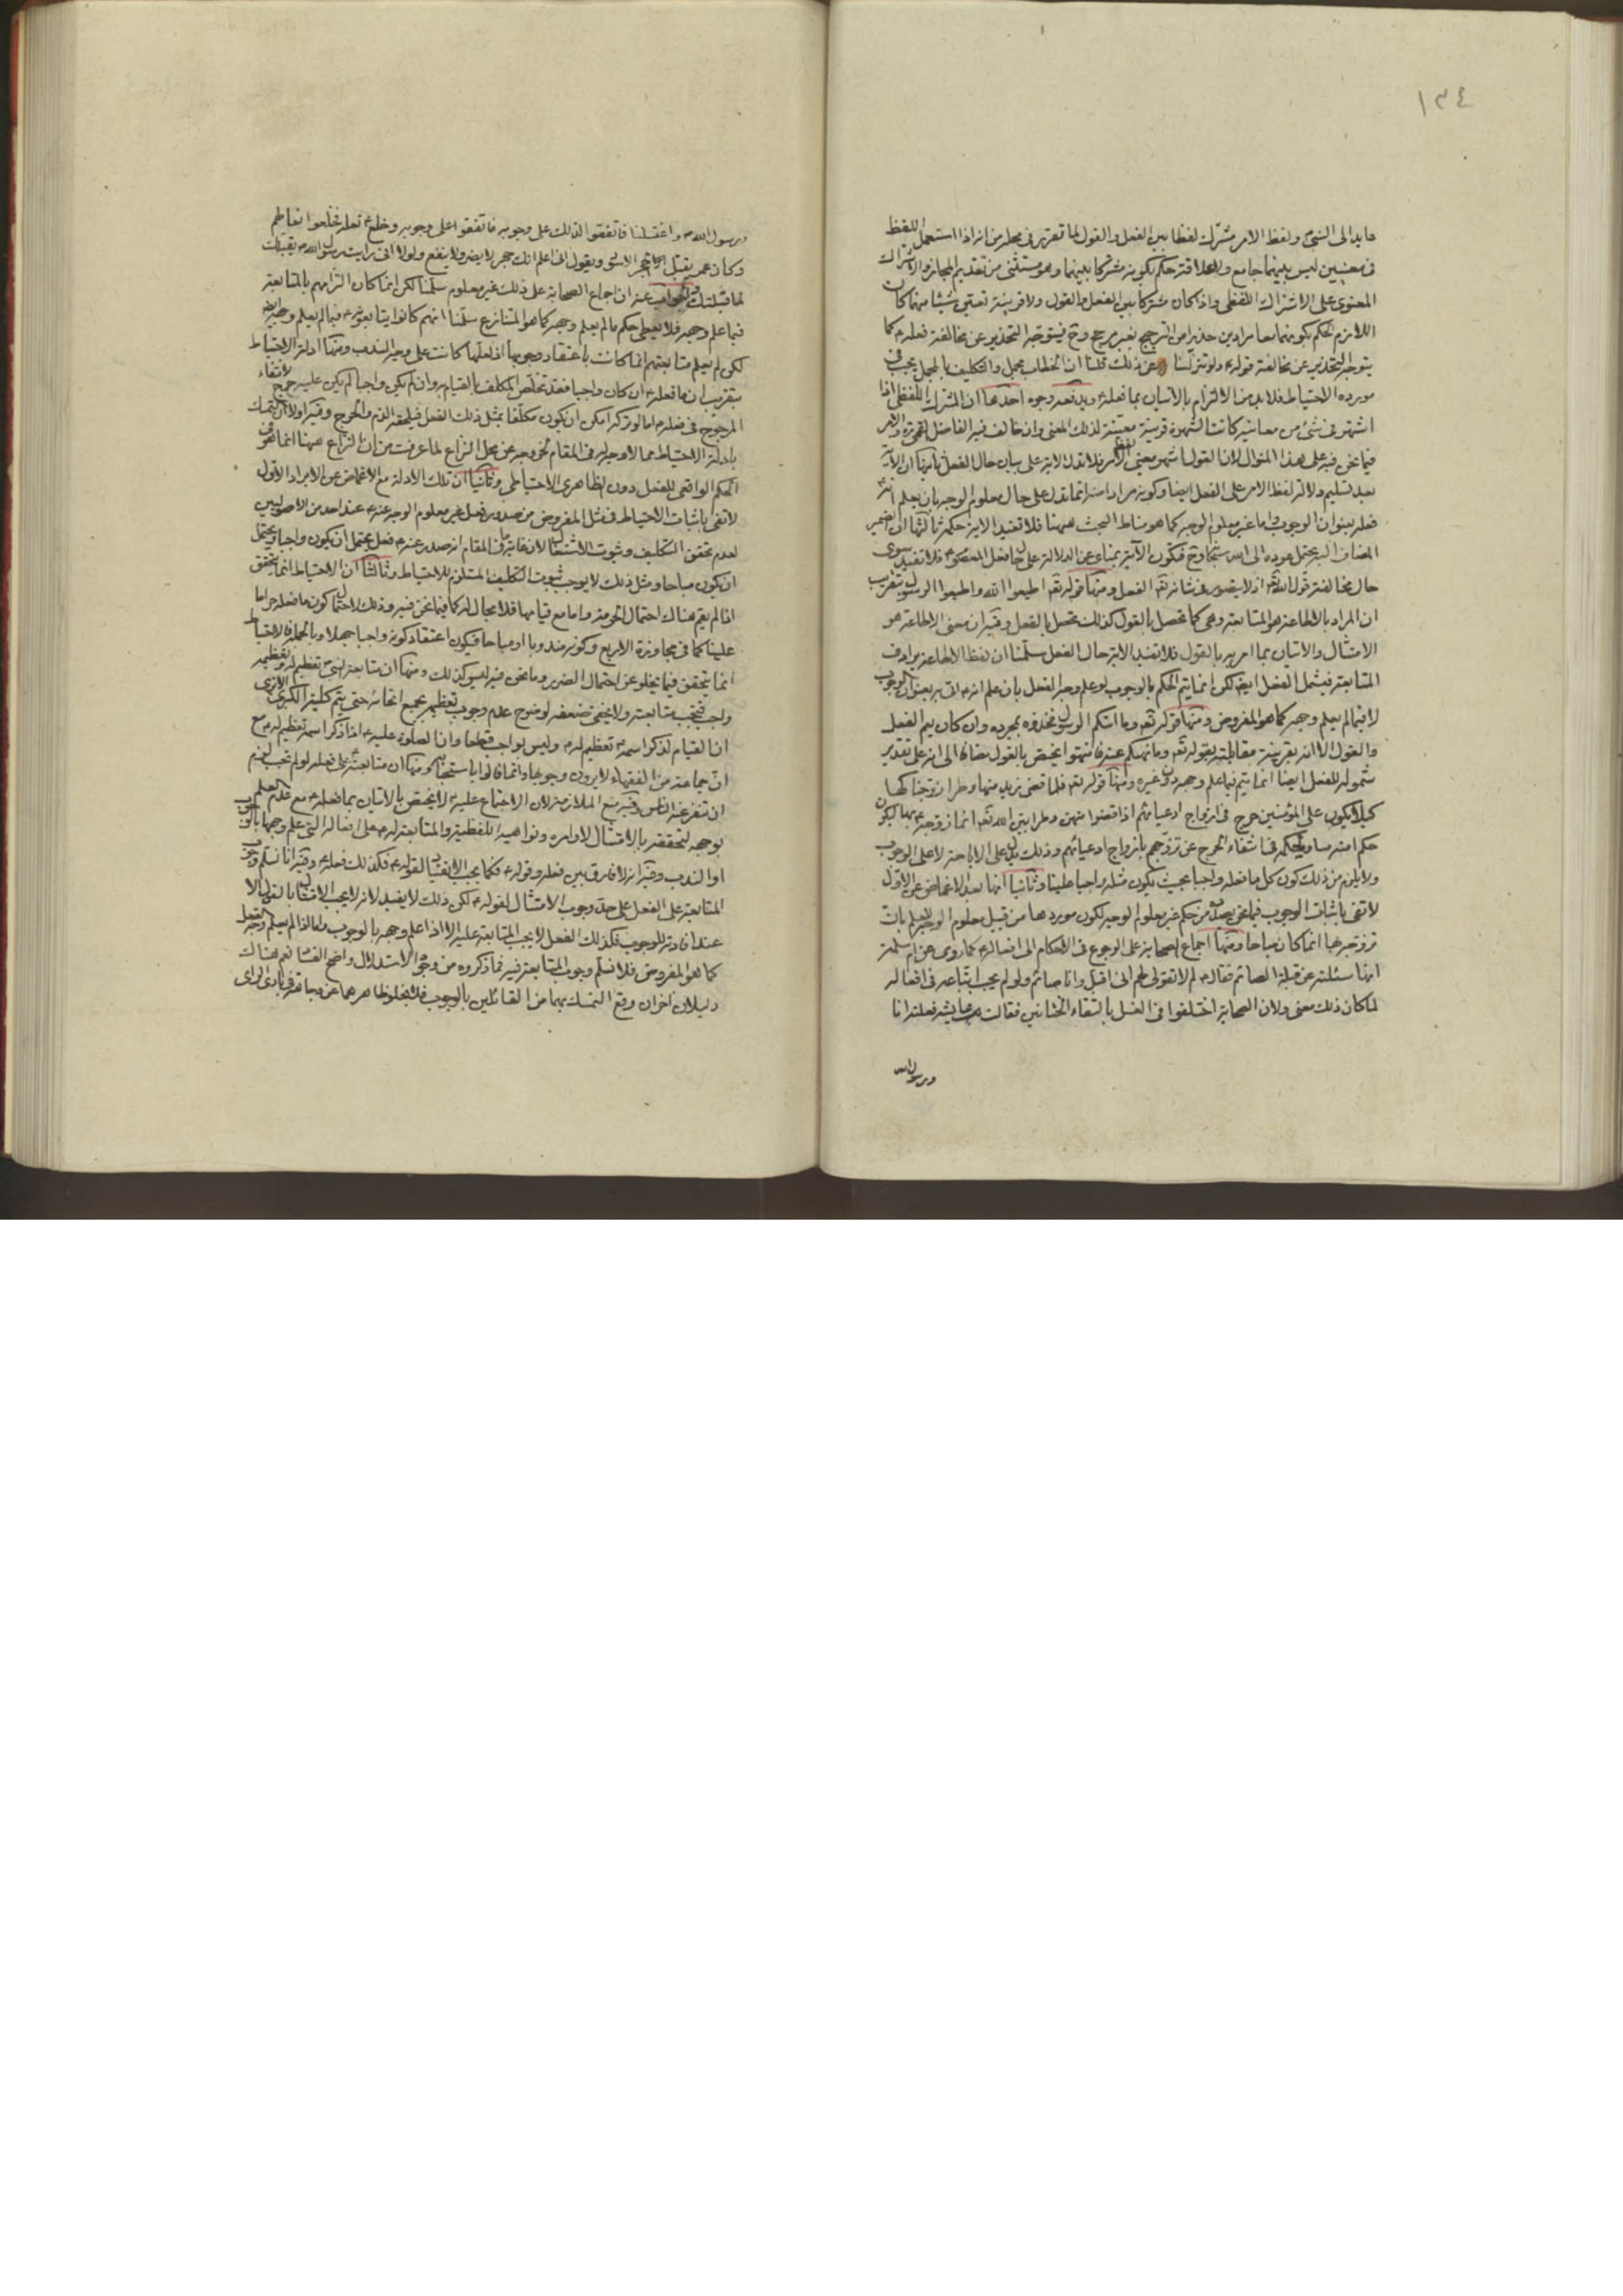 ١٣٤
عايد الى النبيّ ولفظ الامر مشترك لفظا بين الفعل والقول لما تقرر في محله من انه اذا استعمل اللفظ
في معنيين ليس بينهما جامع ولا علاقة حكم بكونه مشتركا بينهما وهو مستثنى من تقديم المجاز والاشتراك
المعنوى على الاشتراك اللفظى واذا كان مشتركا بين الفعل والقول ولا قرينة تعين شيئا منهما كان
اللازم الحكم بكونهما معا مرادين حذرا من الترجيح بغير مرجح وح فيتوجه التحذير عن مخالفة فعله ع كما
يتوجه التحذير عن مخالفة قوله ع ولو تنزلنا عن ذلك قلنا ان الخطاب مجمل والتكليف بالمجمل يجب في
مورده الاحتياط فلا بد من الالتزام بالاتيان بما فعله ع ويدفعه وجوه احدها ان المشترك اللفظى اذا
اشتهر في شئ من معانيه كانت الشهرة قرينة معينة لذلك المعنى وان خالف فيه الفاضل والامر
فيما نحن فيه على هذا المنوال لان القول اشهر معنيى لفظ الامر فلا تدل الاية على بيان حال الفعل ثانيها ان الاية
بعد تسليم دلالة لفظ الامر على الفعل ايضا وكونه مرادا منه انما تدل على حال معلوم الوجه بان يعلم انه ع
فعله بعنوان الوجوب واما غير معلوم الوجه كما هو مناط البحث ههنا فلا تفيد الاية حكمه ثالثها ان الضمير
المضاف اليه يحتمل عوده الى الله سبحانه وح فتكون الاية بمنأى عن الدلالة على حال فعل المعصوم ع فلا تفيد سوى
حال مخالفة قول الله تع اذ لا يتصور في شانه تع الفعل ومنها قوله تع اطيعوا الله واطيعوا الرسول بتقريب
ان المراد بالاطاعة هو المتابعة وهى كما تحصل بالقول كذلك تحصل بالفعل وفيه ان معنى الاطاعة هو
الامتثال والاتيان بما امر به بالقول فلا تفيد الاية حال الفعل سلّمنا ان لفظ الاطاعة يرادف
المتابعة فيشمل الفعل ايضا لكن انما يتم الحكم بالوجوب لو علم وجه الفعل بان علم انه ع اتى به بعنوان الوجوب
لا فيما لم يعلم وجهه كما هو المفروض ومنها قوله تع وما اتيكم الرسول فخذوه بمجرده وان كان يعم الفعل
والقول الا انه بقرينة مقابلته بقوله تع وما نهيكم عنه فانتهوا يختص بالقول مضافا الى انه على تقدير
شموله للفعل ايضا انما يتم فيما علم وجهه دون غيره ومنها قوله تع فلما قضى زيد منها وطرا زوجناكها
كيلا يكون على المؤمنين حرج في ازواج ادعيائهم اذا قضوا منهن وطرا بيّن الله تع انما زوجه ع بها ليكون
حكم امته مساويا لحكمه في انتفاء الحرج عن تزوجهم بازواج ادعيائهم وذلك يدل على الاباحة لا على الوجوب
ولا يلزم من ذلك كون كل ما فعله واجبا بحيث يكون مثله واجبا علينا وثانيا انها بعد الاغماض عن الاول
لا تفى باثبات الوجوب فيما نحن بصدده من حكم غير معلوم الوجه لكون موردها من قبيل معلوم الوجه للعلم بان
تزوجه بها انما كان مباحا ومنها اجماع الصحابة على الرجوع في الاحكام الى افعاله ع كما روى عن ام سلمة
انها سئلته عن قبلة الصائم فقال ع لم لا تقولى لهم انى اقبل وانا صائم ولو لم يجب اتباعه في افعاله
لما كان لذلك معنى ولان الصحابة اختلفوا في الغسل بالتقاء الختانين فقالت عايشه فعلته انا
ورسول الله
ورسول الله ص واغتسلنا فاتفقوا لذلك على وجوبه فاتفقوا على وجوبه وخلع ع نعله فخلعوا نعالهم
وكان عمر يقبّل الحجر الاسود ويقول انى اعلم انك حجر لا يضر ولا ينفع ولولا انى رايت رسول الله ص يقبلك
لما قبلتك والجواب عنه ان اجماع الصحابة على ذلك غير معلوم سلّمنا لكن انما كان التزامهم بالمتابعة
فيما علم وجهه فلا يعطى حكم ما لم يعلم وجهه كما هو المتنازع سلّمنا انهم كانوا يتابعونه ع فيما لم يعلم وجهه ايضا
لكن لم يعلم متابعتهم انما كانت باعتقاد وجوبها اذ لعلها كانت على وجه الندب ومنها ادلة الاحتياط
بتقريب ان ما فعله ع ان كان واجبا فقد تخلص المكلف بالقيام به وان لم يكن واجبا لم يكن عليه حرج لانتفاء
المرجوح في فعله ع اما لو تركه امكن ان يكون مكلفا بمثل ذلك الفعل فيلحقه الذم والحرج وفيه اولا ان التمسك
بادلة الاحتياط مما لا وجه له في المقام لخروجه عن محل النزاع لما عرفت من ان النزاع ههنا انما هو في
الحكم الواقعى للفعل دون الظاهرى الاحتياطى وثانيا ان تلك الادلة مع الاغماض عن الايراد الاول
لا تفى باثبات الاحتياط في مثل المفروض من صدور فعل غير معلوم الوجه عنه ع عند احد من الاصوليين
لعدم تحقق التكليف وثبوت الاشتغال لان غايته في المقام انه صدر عنه ع فعل يحتمل ان يكون واجبا ويحتمل
ان يكون مباحا ومثل ذلك لا يوجب ثبوت التكليف المستلزم للاحتياط وثالثا ان الاحتياط انما يتحقق
اذا لم يقم هناك احتمال الحرمة واما مع قيامها فلا مجال له كما فيما نحن فيه وذلك لاحتمال كون ما فعله حراما
علينا كما في مجاوزة الاربع وكونه مندوبا او مباحا فيكون اعتقاد كونه واجبا جهلا وبالجملة فالاحتياط
انما يتحقق فيما يخلو عن احتمال الضرر وما نحن فيه ليس كذلك ومنها ان متابعة النبى ع تعظيم له وتعظيمه
واجب فتجب متابعته ولا يخفى ضعفه لوضوح عدم وجوب تعظيمه بجميع انحائه حتى يتم كلية الكبرى الا ترى
ان القيام لذكر اسمه ع تعظيم له ع وليس بواجب قطعا وان الصلوة عليه ع اذا ذكر اسمه تعظيم له ع مع
ان جماعة من الفقهاء لا يرون وجوبها وانما قالوا باستحبابه ومنها ان متابعته ع على فعله لو لم تجب لزم
ان تنفر عنه الناس وفيه منع الملازمة لان الاجتماع عليه ع لا يختص بالاتيان بما فعله ع مع عدم العلم
بوجهه لتحققه بالامتثال لاوامره ونواهيه اللفظية والمتابعة له ع على افعاله التى علم وجهها بالوجوب
او الندب ومنها انه لا فارق بين فعله وقوله ع فكما يجب الامتثال لقوله ع فكذلك فعله ع وفيه انا نسلم وجوب
المتابعة على الفعل على حد وجوب الامتثال لقوله ع لكن ذلك لا يفيد لانه لا يجب الامتثال بالقول الا
عند افادته للوجوب فكذلك الفعل لا يجب المتابعة عليه الا اذا علم وجهه بالوجوب واما اذا لم يعلم وجه الفعل
كما هو المفروض فلا نسلم وجوب المتابعة فيه فما ذكروه من وجوه الاستدلال واضح الفساد نعم هناك
دليلان اخران وقع التمسك بهما من القائلين بالوجوب فلا يخلو ظاهرهما عن وجاهة في بادى الراى